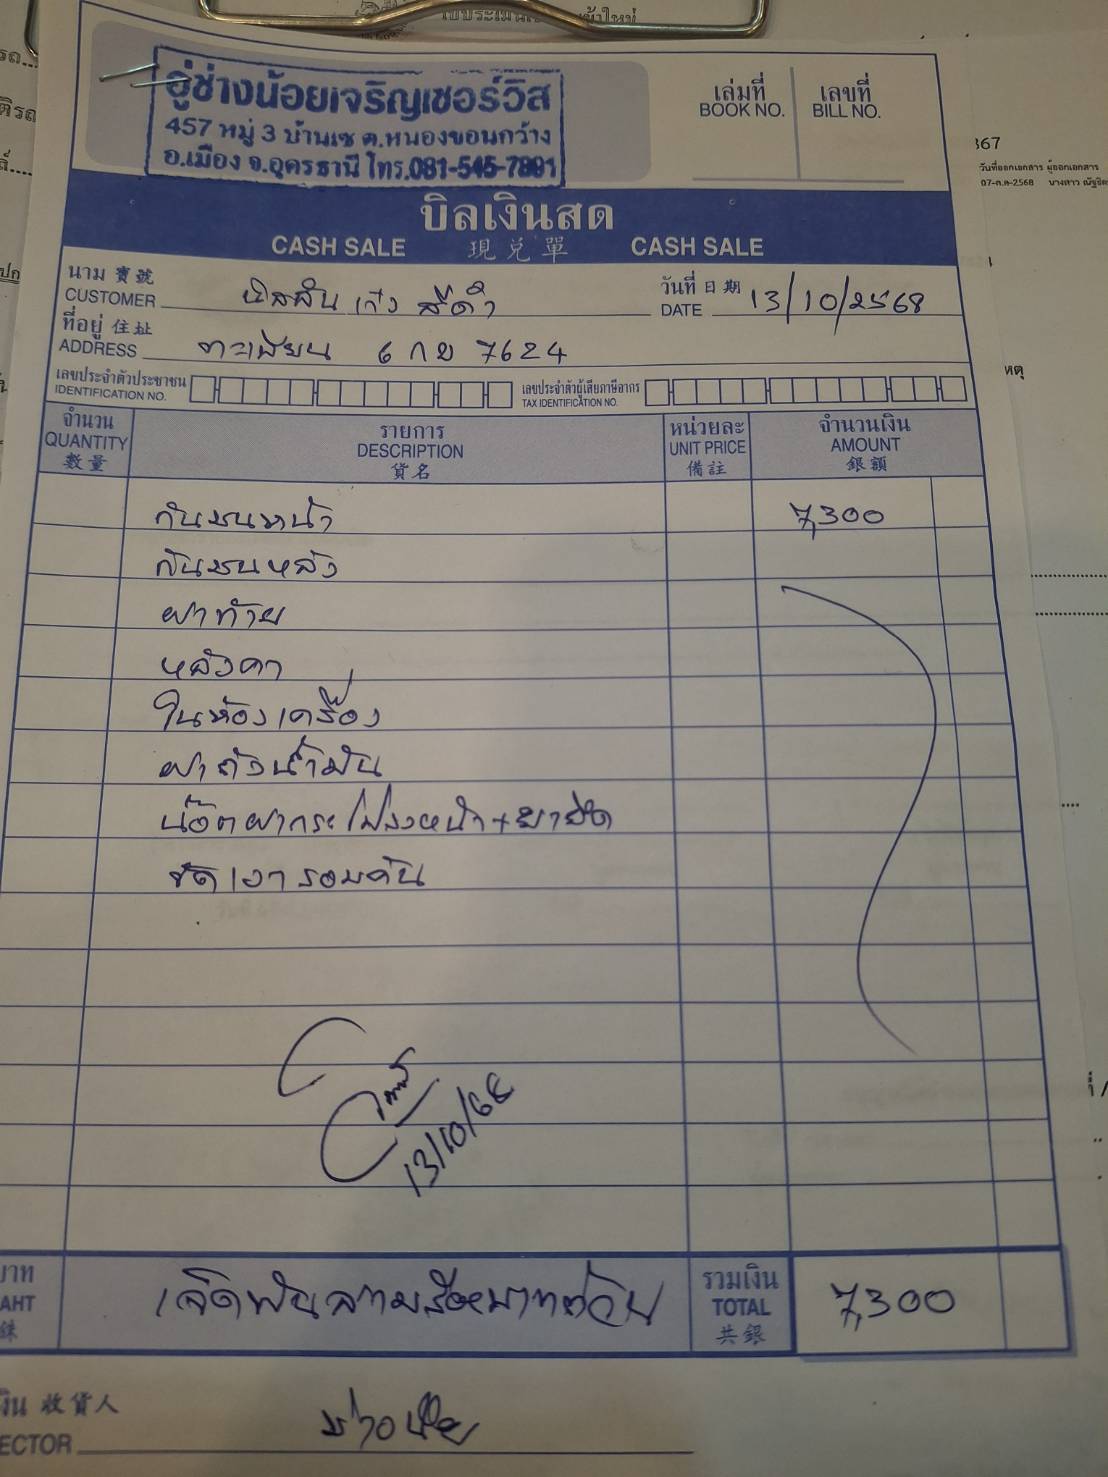 อู่ช่างน้อยเจริญเซอร์วิส
457 หมู่ 3 บ้านเซ ต.หนองขอนกว้าง
อ.เมือง จ.อุดรธานี โทร.081-545-7891
เล่มที่
BOOK NO.
เลขที่
BILL NO.
367
วันที่ออกเอกสาร ผู้ออกเอกสาร
07-ต.ค-2568
บิลเงินสด
CASH SALE 現兑單 CASH SALE
นาม 寶號
CUSTOMER นิสสัน เก๋ง สีดำ
วันที่ 日期
DATE 13/10/2568
ที่อยู่ 住址
ADDRESS ทะเบียน 6 กข 7624
เลขประจำตัวประชาชน
IDENTIFICATION NO.
เลขประจำตัวผู้เสียภาษีอากร
TAX IDENTIFICATION NO.
จำนวน รายการ หน่วยละ จำนวนเงิน
QUANTITY DESCRIPTION UNIT PRICE AMOUNT
數量 貨名 備註 銀額
กันชนหน้า 7,300
กันชนหลัง
ฝาท้าย
หลังคา
ในห้องเครื่อง
ฝาถังน้ำมัน
น๊อตฝากระโปรงหน้า+ขายึด
ขัดเงารอบคัน
13/10/68
บาท
BAHT
เจ็ดพันสามร้อยบาทถ้วน
รวมเงิน
TOTAL
共銀
7,300
เงิน 收貨人
ECTOR ช่างน้อย